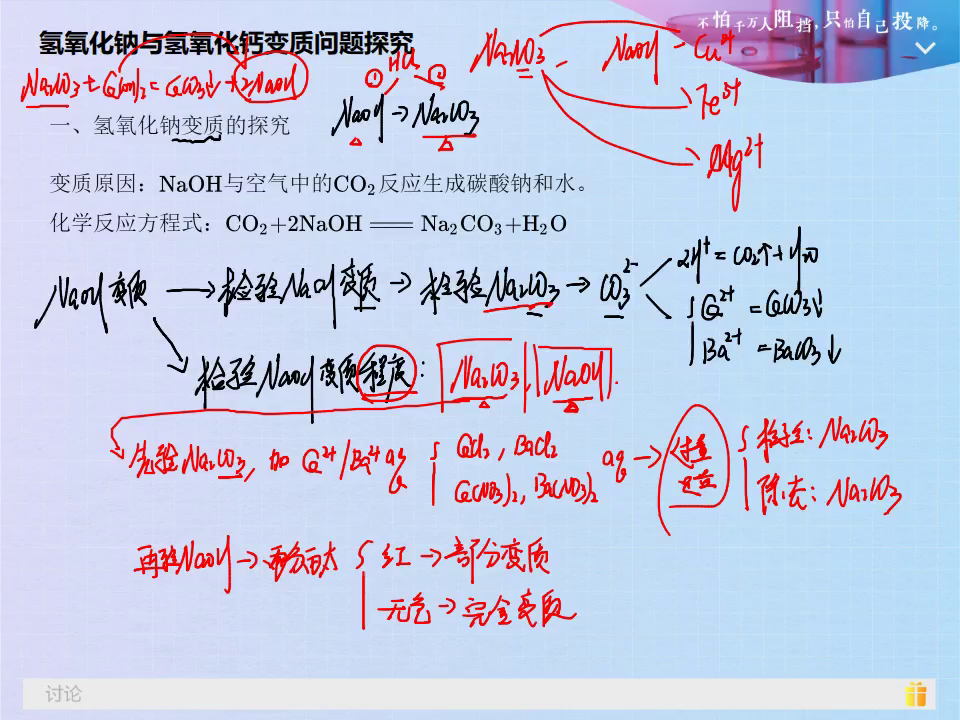 不怕千万人阻挡,只怕自己投降。
氢氧化钠与氢氧化钙变质问题探究
Na₂CO₃+Ca(OH)₂=CaCO₃↓+2NaOH
① HCl ②
NaOH→Na₂CO₃
Na₂CO₃ NaOH Cu²⁺
Fe³⁺
Mg²⁺
一、氢氧化钠变质的探究
变质原因：NaOH与空气中的CO₂反应生成碳酸钠和水。
化学反应方程式：CO₂+2NaOH══Na₂CO₃+H₂O
NaOH变质→检验NaOH变质→检验Na₂CO₃→CO₃²⁻
2H⁺=CO₂↑+H₂O
Ca²⁺=CaCO₃↓
Ba²⁺=BaCO₃↓
检验NaOH变质程度：Na₂CO₃，NaOH.
先验Na₂CO₃，加Ca²⁺/Ba²⁺aq
CaCl₂，BaCl₂
Ca(NO₃)₂，Ba(NO₃)₂
aq→过量
检验：Na₂CO₃
除去：Na₂CO₃
再验NaOH→酚酞
红→部分变质
无色→完全变质
讨论